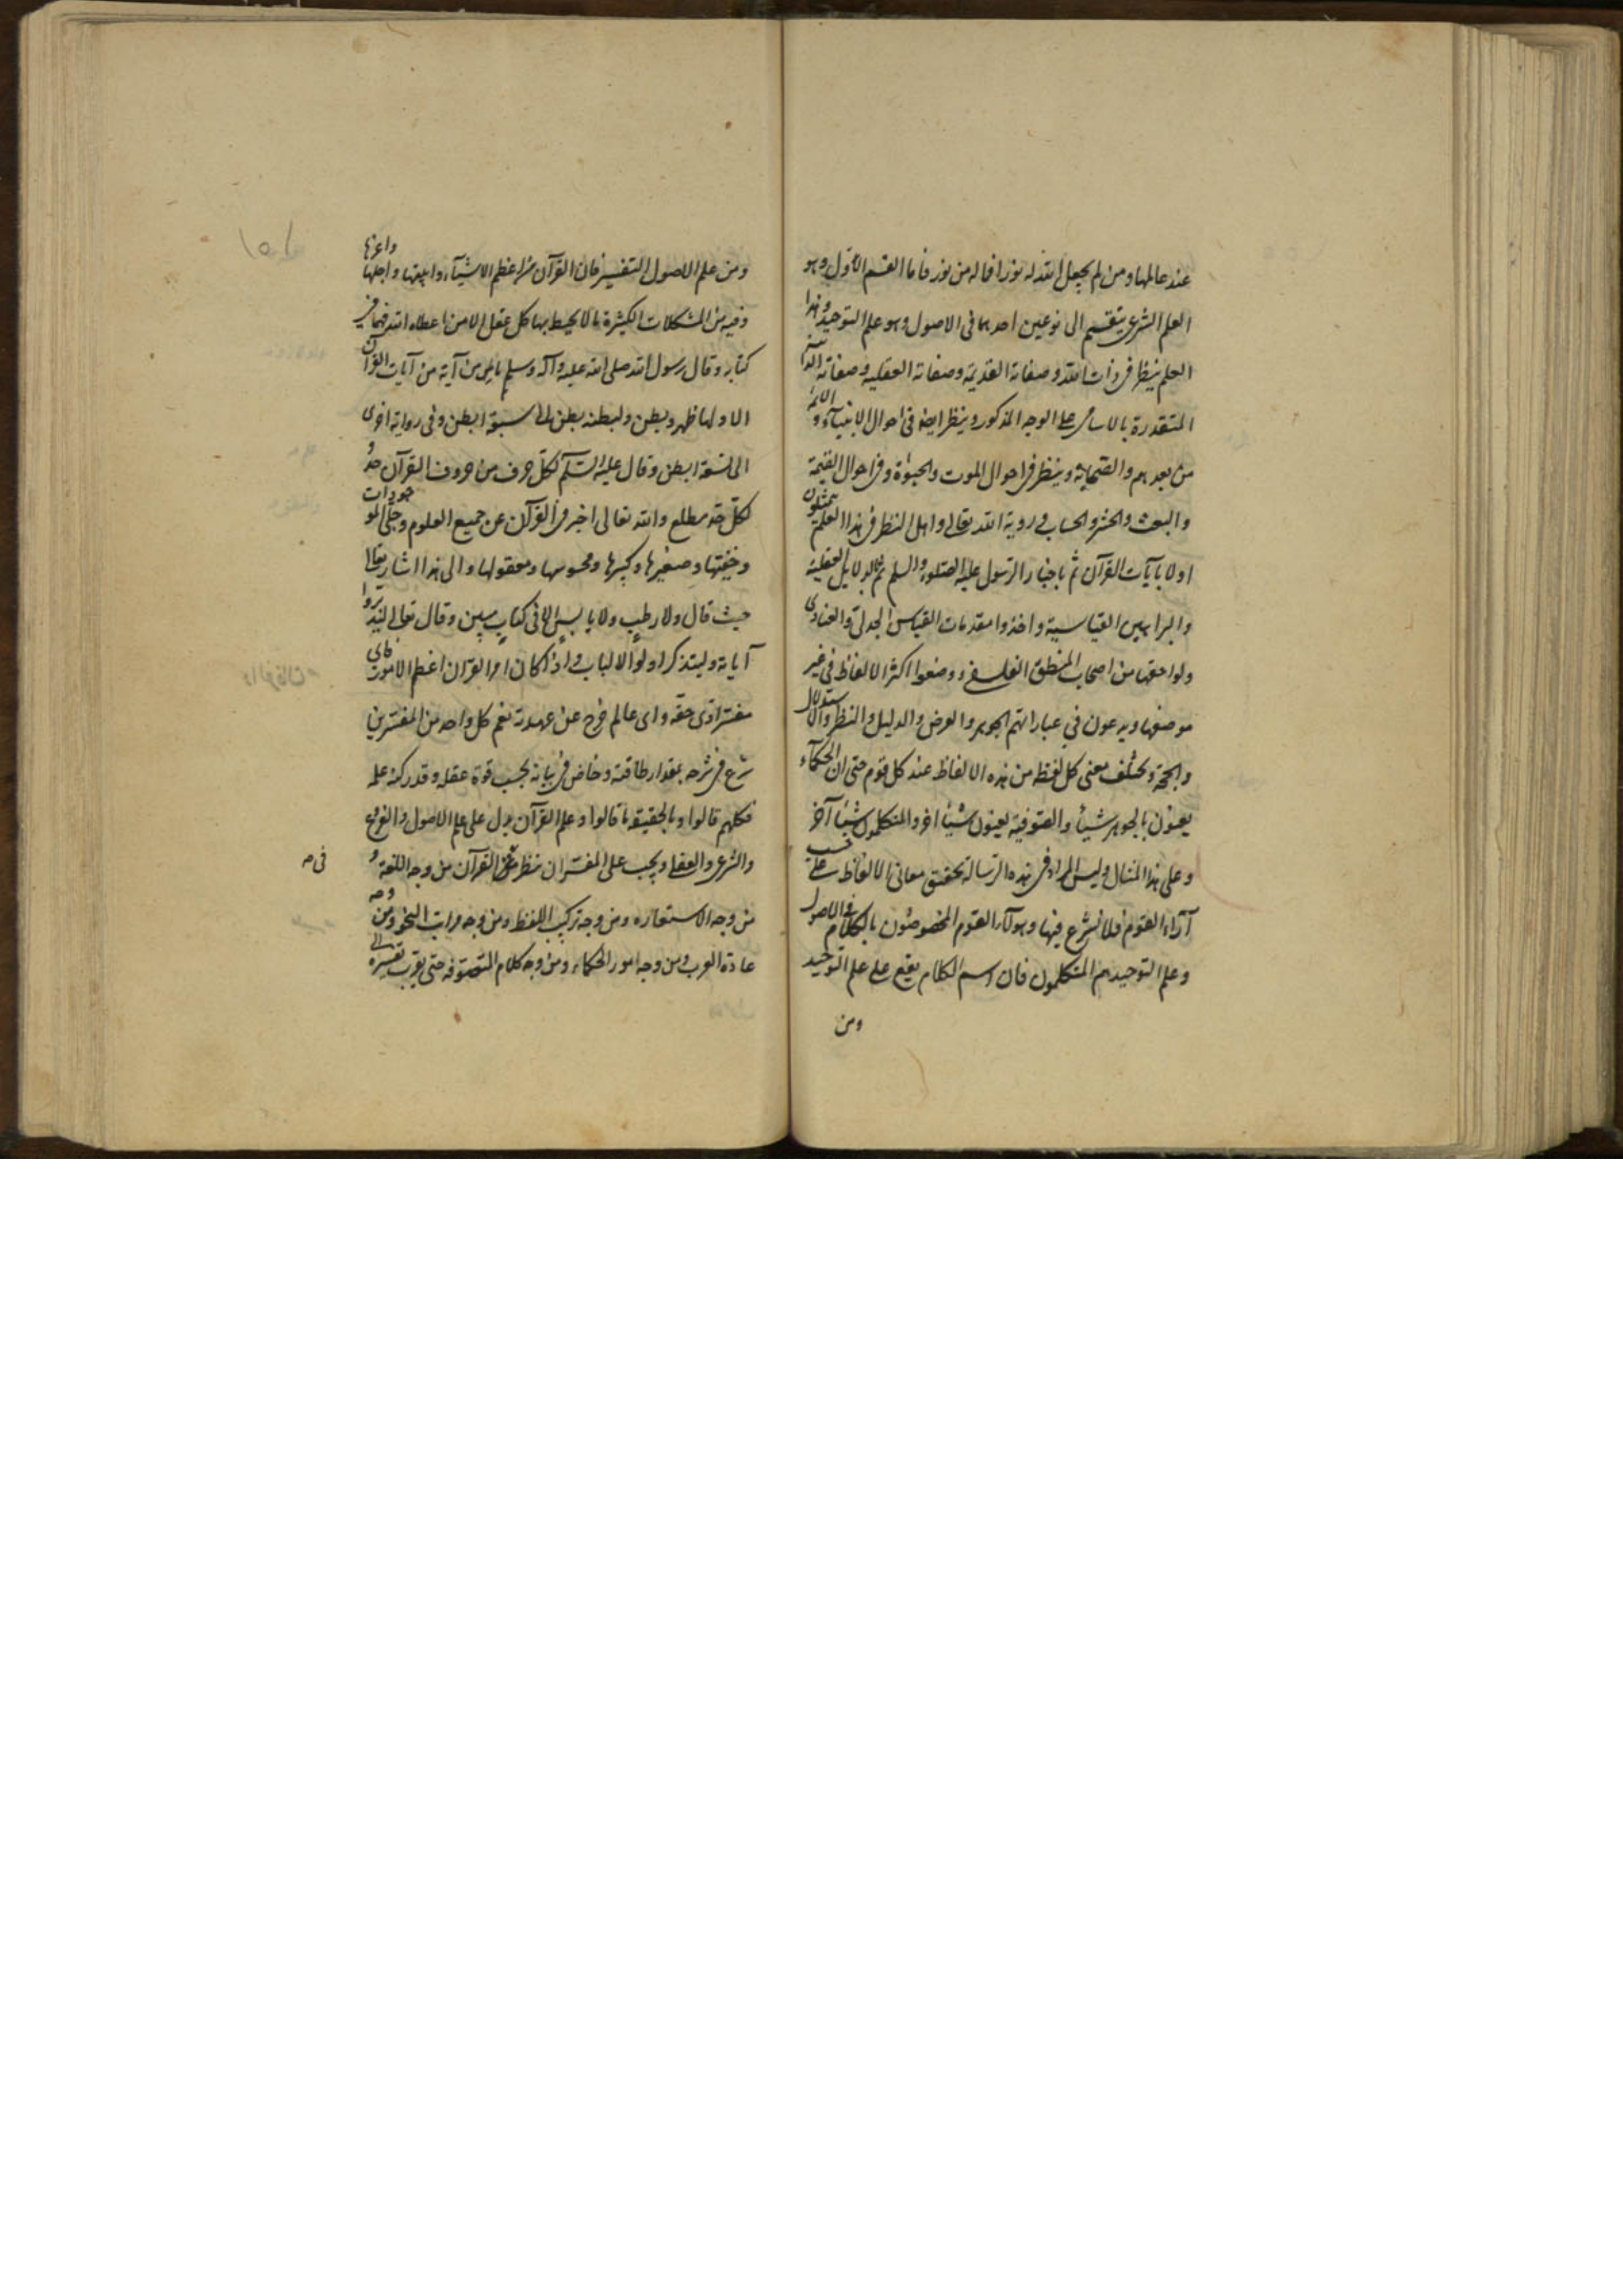 عند عالمها ومن لم يجعل الله له نورا فما له من نور فاما القسم الاول وهو
العلم الشرعى ينقسم الى نوعين احدهما فى الاصول وهو علم التوحيد وهذا
العلم ينظر فى ذات الله وصفاته القديمة وصفاته العقلية وصفاته الذاتية
المتقدرة بالاسامى على الوجه المذكور وينظر ايضا فى احوال الانبياء والائمة
من بعدهم والصحابة وينظر فى احوال الموت والحيوة وفى احوال القيمة
والبعث والحشر والحساب و روية الله تعالى واهل النظر فى هذا العلم يتمثلون
اولا بآيات القرآن ثم باخبار الرسول عليه الصلوة والسلم ثم بالدلايل العقلية
والبراهين القياسية واخذوا مقدمات القياس الجدلى والعنادى
ولواحقها من اصحاب المنطق الفلسفى ووضعوا اكثر الالفاظ فى غير
موضعها ويدعون فى عباراتهم الجوهر والعرض والدليل والنظر والاستدلال
والحجة ويختلف معنى كل لفظ من هذه الالفاظ عند كل قوم حتى ان الحكمآء
يعنون بالجوهر شيئا والصوفية يعنون شيئا اخر والمتكلمون شيئا آخر
وعلى هذا المثال وليس المراد فى هذه الرسالة تحقيق معانى الالفاظ على حسب
آراء القوم فلا نشرع فيها وهولآء القوم المخصوصون بالكلام فى الاصول
وعلم التوحيد هم المتكلمون فان اسم الكلام يقع على علم التوحيد
ومن
ومن علم الاصول التفسير فان القرآن من اعظم الاشيآء وابلغها واجلها واعزها
وفيه من المشكلات الكثيرة ما لا يحيط بها كل عقل الا من اعطاه الله فهما فى
كتابه وقال رسول الله صلى الله عليه وآله وسلم ما من آية من آيات القرآن
الا ولها ظهر وبطن ولبطنه بطن الى سبعة ابطن وفى رواية اخرى
الى تسعة ابطن وقال عليه السلم لكل حرف من حروف القرآن حد و
لكل حد مطلع والله تعالى اخبر فى القرآن عن جميع العلوم وجلى الموجودات
وخفيها وصغيرها وكبيرها ومحسوسها ومعقولها والى هذا اشار تعالى
حيث قال ولا رطب ولا يابس الا فى كتاب مبين وقال تعالى ليدبروا
آياته وليتذكر اولوا الالباب واذا كان امر القرآن اعظم الامور فاى
مفسر ادى حقه واى عالم خرج عن عهدته نعم كل واحد من المفسرين
شرع فى شرحه بمقدار طاقته وخاض فى بيانه بحسب قوة عقله وقدر كنه علمه
فكلهم قالوا وبالحقيقة ما قالوا وعلم القرآن يدل على علم الاصول والفروع
والشرعى والعقلى ويجب على المفسر ان ينظر فى القرآن من وجه اللغة و
من وجه الاستعارة ومن وجه تركيب اللفظ ومن وجه مراتب النحو ومن وجه
عادة العرب ومن وجه امور الحكماء ومن وجه كلام المتصوفة حتى يقرب تفسيره الى